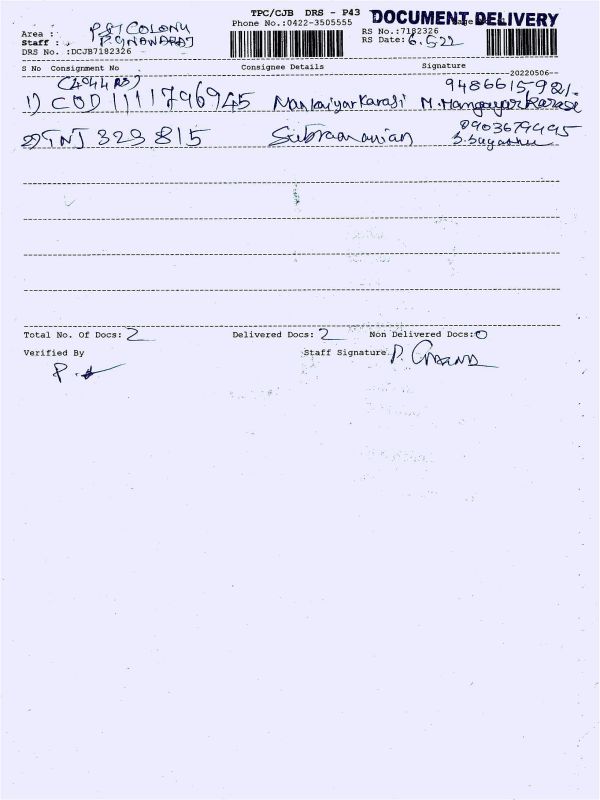 TPC/CJB DRS - P43 DOCUMENT DELIVERY
Area : P&T COLONY
Phone No.:0422-3505555
RS No.:7182326
Staff : P. GNANARAJ
RS Date: 6.5.22
DRS No. :DCJB7182326
S No Consignment No Consignee Details Signature
20220506
1) COD 1111796945 M. Mangayarkarasi
2) TNJ 323 815 Subramanian
Total No. Of Docs: 2 Delivered Docs: 2 Non Delivered Docs: 0
Verified By Staff Signature
P.